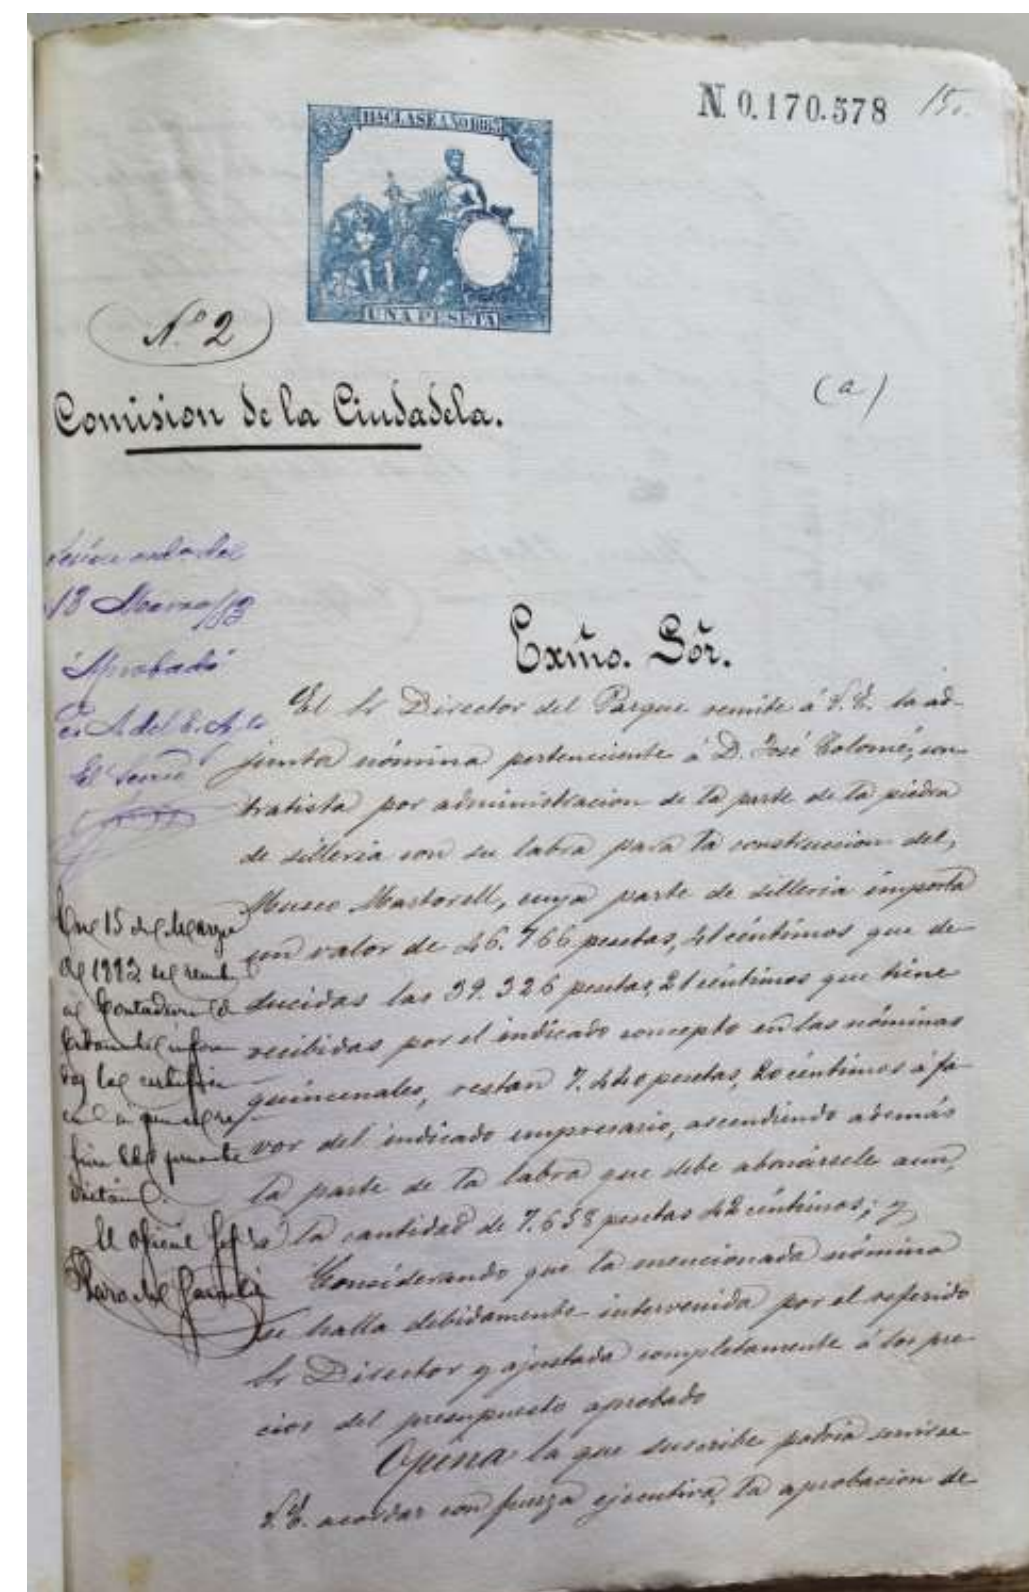 N. 0.170.578
15.
UNA PESETA
N.º 2
Comision de la Ciudadela.
(a)
13 Marzo/83
Aprobado
El Secrio
Exmo. Sor.
El Sr Director del Parque remite á V.E. la ad-
junta nómina perteneciente á D. José Colomé, con-
tratista por administracion de la parte de la piedra
de silleria con su labra para la construccion del,
Museo Martorell, cuya parte de silleria importa
un valor de 46.766 pesetas, 41 céntimos que de-
ducidas las 39.326 pesetas, 21 céntimos que tiene
recibidas por el indicado concepto en las nóminas
quincenales, restan 7.440 pesetas, 20 céntimos á fa-
vor del indicado empresario, ascendiendo además
la parte de la labra que debe abonársele aun,
á la cantidad de 7.658 pesetas 42 céntimos; y
Considerando que la mencionada nómina
se halla debidamente intervenida por el referido
Sr Director y ajustada completamente á los pre-
cios del presupuesto aprobado
Opina la que suscribe podria servirse
V.E. acordar con fuerza ejecutiva, la aprobacion de
15 de Marzo
El oficial